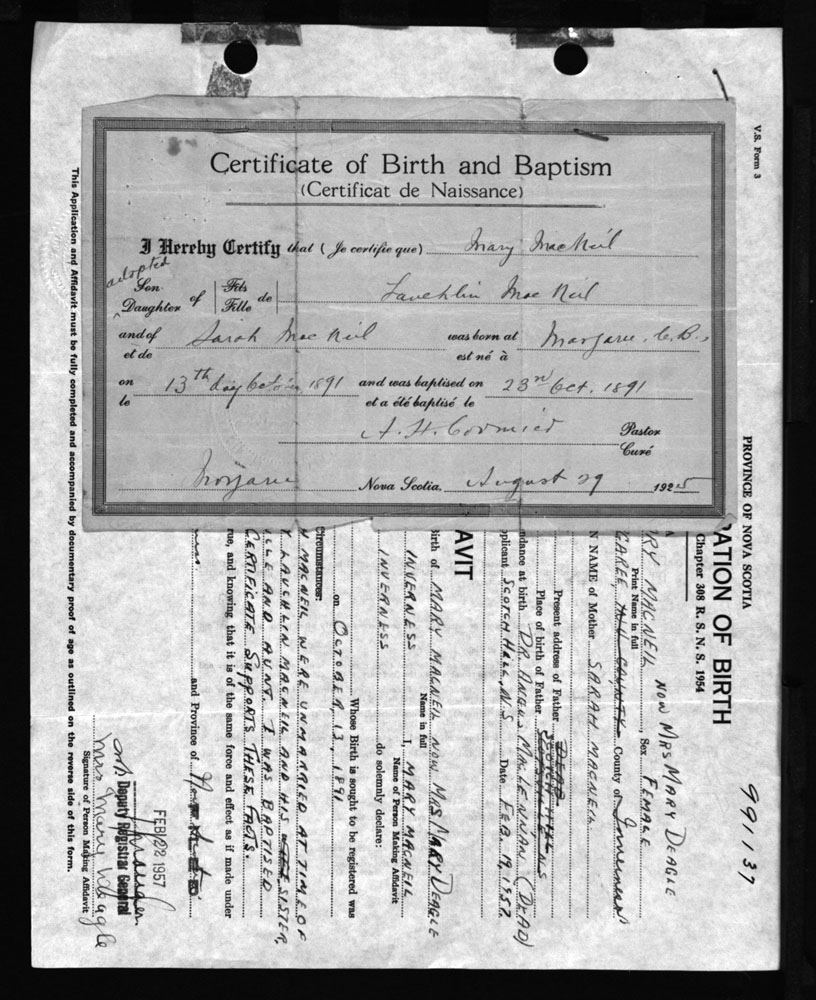 Certificate of Birth and Baptism
(Certificat de Naissance)
I Hereby Certify that (Je certifie que) Mary MacNeil
adopted
Son Daughter of Fils Fille de Lauchlin MacNeil
and of et de Sarah MacNeil was born at est né à Margaree, C.B.,
on le 13th day October 1891 and was baptised on et a été baptisé le 23rd Oct. 1891
A. H. Cormier Pastor Curé
Margaree Nova Scotia, August 29 1925
V.S. Form 3
PROVINCE OF NOVA SCOTIA
RATION OF BIRTH
Chapter 308 R. S. N. S. 1954
991137
RY MACNEIL NOW MRS MARY DEAGLE
Print Name in full , Sex FEMALE
GAREE, County of Inverness
N NAME of Mother SARAH MACNEIL
Present address of Father DEAD
Place of birth of Father N S
ndance at birth DR. ANGUS MACLENNAN (DEAD)
pplicant SCOTCH HILL, N.S Date FEB. 19, 1957.
AVIT
Birth of MARY MACNEIL NOW MRS MARY DEAGLE
Name in full
INVERNESS I, MARY MACNEIL
Name of Person Making Affidavit
INVERNESS do solemnly declare:
Whose Birth is sought to be registered was
on OCTOBER 13, 1891
Circumstances:
H MACNEIL WERE UNMARRIED AT TIME OF
Y LAUCHLIN MACNEIL AND HIS SISTER,
CLE AND AUNT. I WAS BAPTISED
CERTIFICATE SUPPORTS THESE FACTS.
rue, and knowing that it is of the same force and effect as if made under
and Province of
FEB 22 1957
Deputy Registrar General
Mrs Mary Deagle
Signature of Person Making Affidavit
This Application and Affidavit must be fully completed and accompanied by documentary proof of age as outlined on the reverse side of this form.